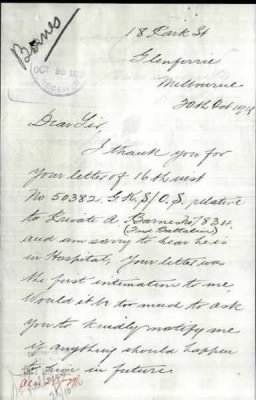 Barnes
OCT 26 191
RECEIVED
18 Park St
Glenferrie
Melbourne
20th Oct 1918
Dear Sir,
I thank you for
your letter of 16th inst
No 50382 relative
to Private A. Barnes No 7834
(2nd Battalion)
and am sorry to hear he is
in Hospital, Your letter was
the first intimation to me
Would it be too much to ask
you to kindly notify me
if anything should happen
to him in future